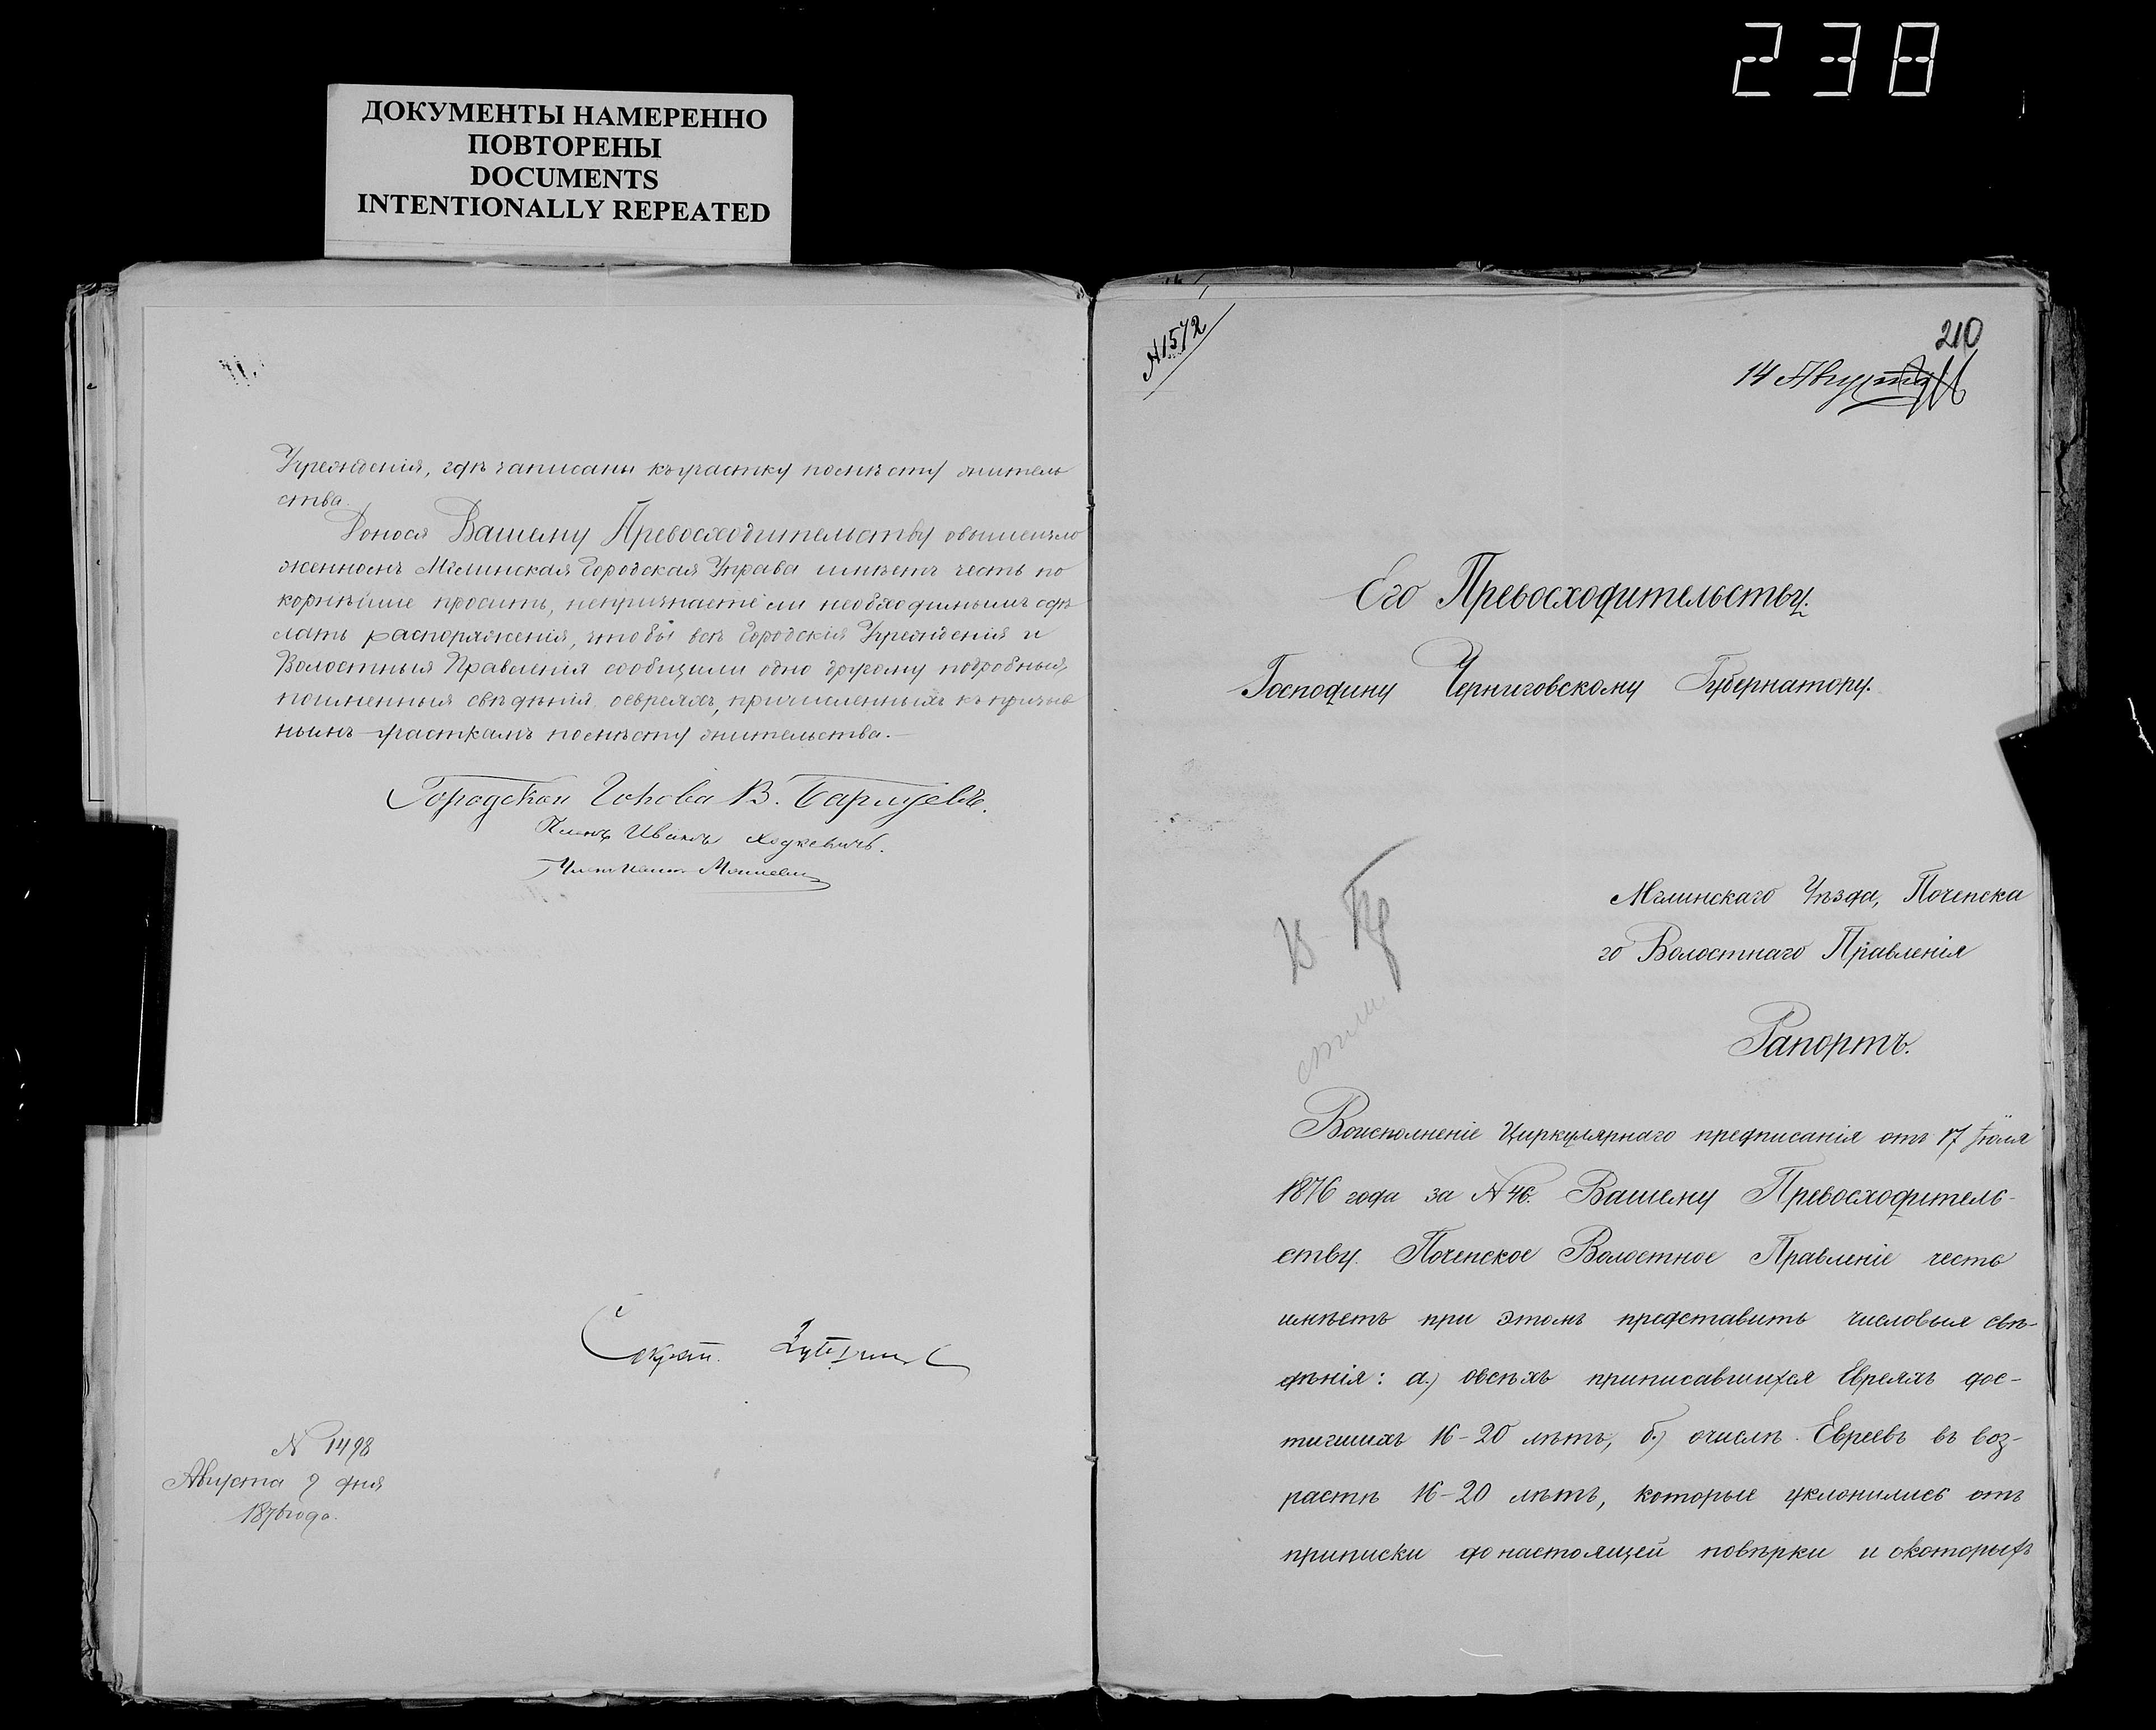 238
ДОКУМЕНТЫ НАМЕРЕННО
ПОВТОРЕНЫ
DOCUMENTS
INTENTIONALLY REPEATED
Учрежденія, гдѣ записаны къ участку по мѣсту житель
ства.
Донося Вашему Превосходительству о вышеизло
женномъ Мглинская Городская Управа имѣетъ честь по
корнѣйше просить, не признаете ли необходимымъ сдѣ
лать распоряженія, чтобы всѣ Городскія Учрежденія и
Волостныя Правленія сообщили одно другому подробныя,
поименныя свѣдѣнія о евреяхъ, причисленныхъ къ призыв
нымъ участкамъ по мѣсту жительства.—
Городской Голова В.
Членъ Иванъ Ходкевичъ.
Членъ
Секрет.
N 1498
Августа 9 дня
1876 года.
N 1572
210
14 Августа
Его Превосходительству.
Господину Черниговскому Губернатору.
Мглинскаго Уѣзда, Почепска
го Волостнаго Правленія
Рапортъ.
Воисполненіе Циркулярнаго предписанія отъ 17 Іюля
1876 года за N 46. Вашему Превосходитель-
ству. Почепское Волостное Правленіе честь
имѣетъ при этомъ представить числовыя свѣ-
дѣнія: а.) овсѣхъ приписавшихся Евреяхъ дос-
тигшихъ 16-20 лѣтъ, б.) очислѣ Евреевъ въ воз-
растѣ 16-20 лѣтъ, которые уклонились отъ
приписки до настоящей повѣрки и окоторыхъ